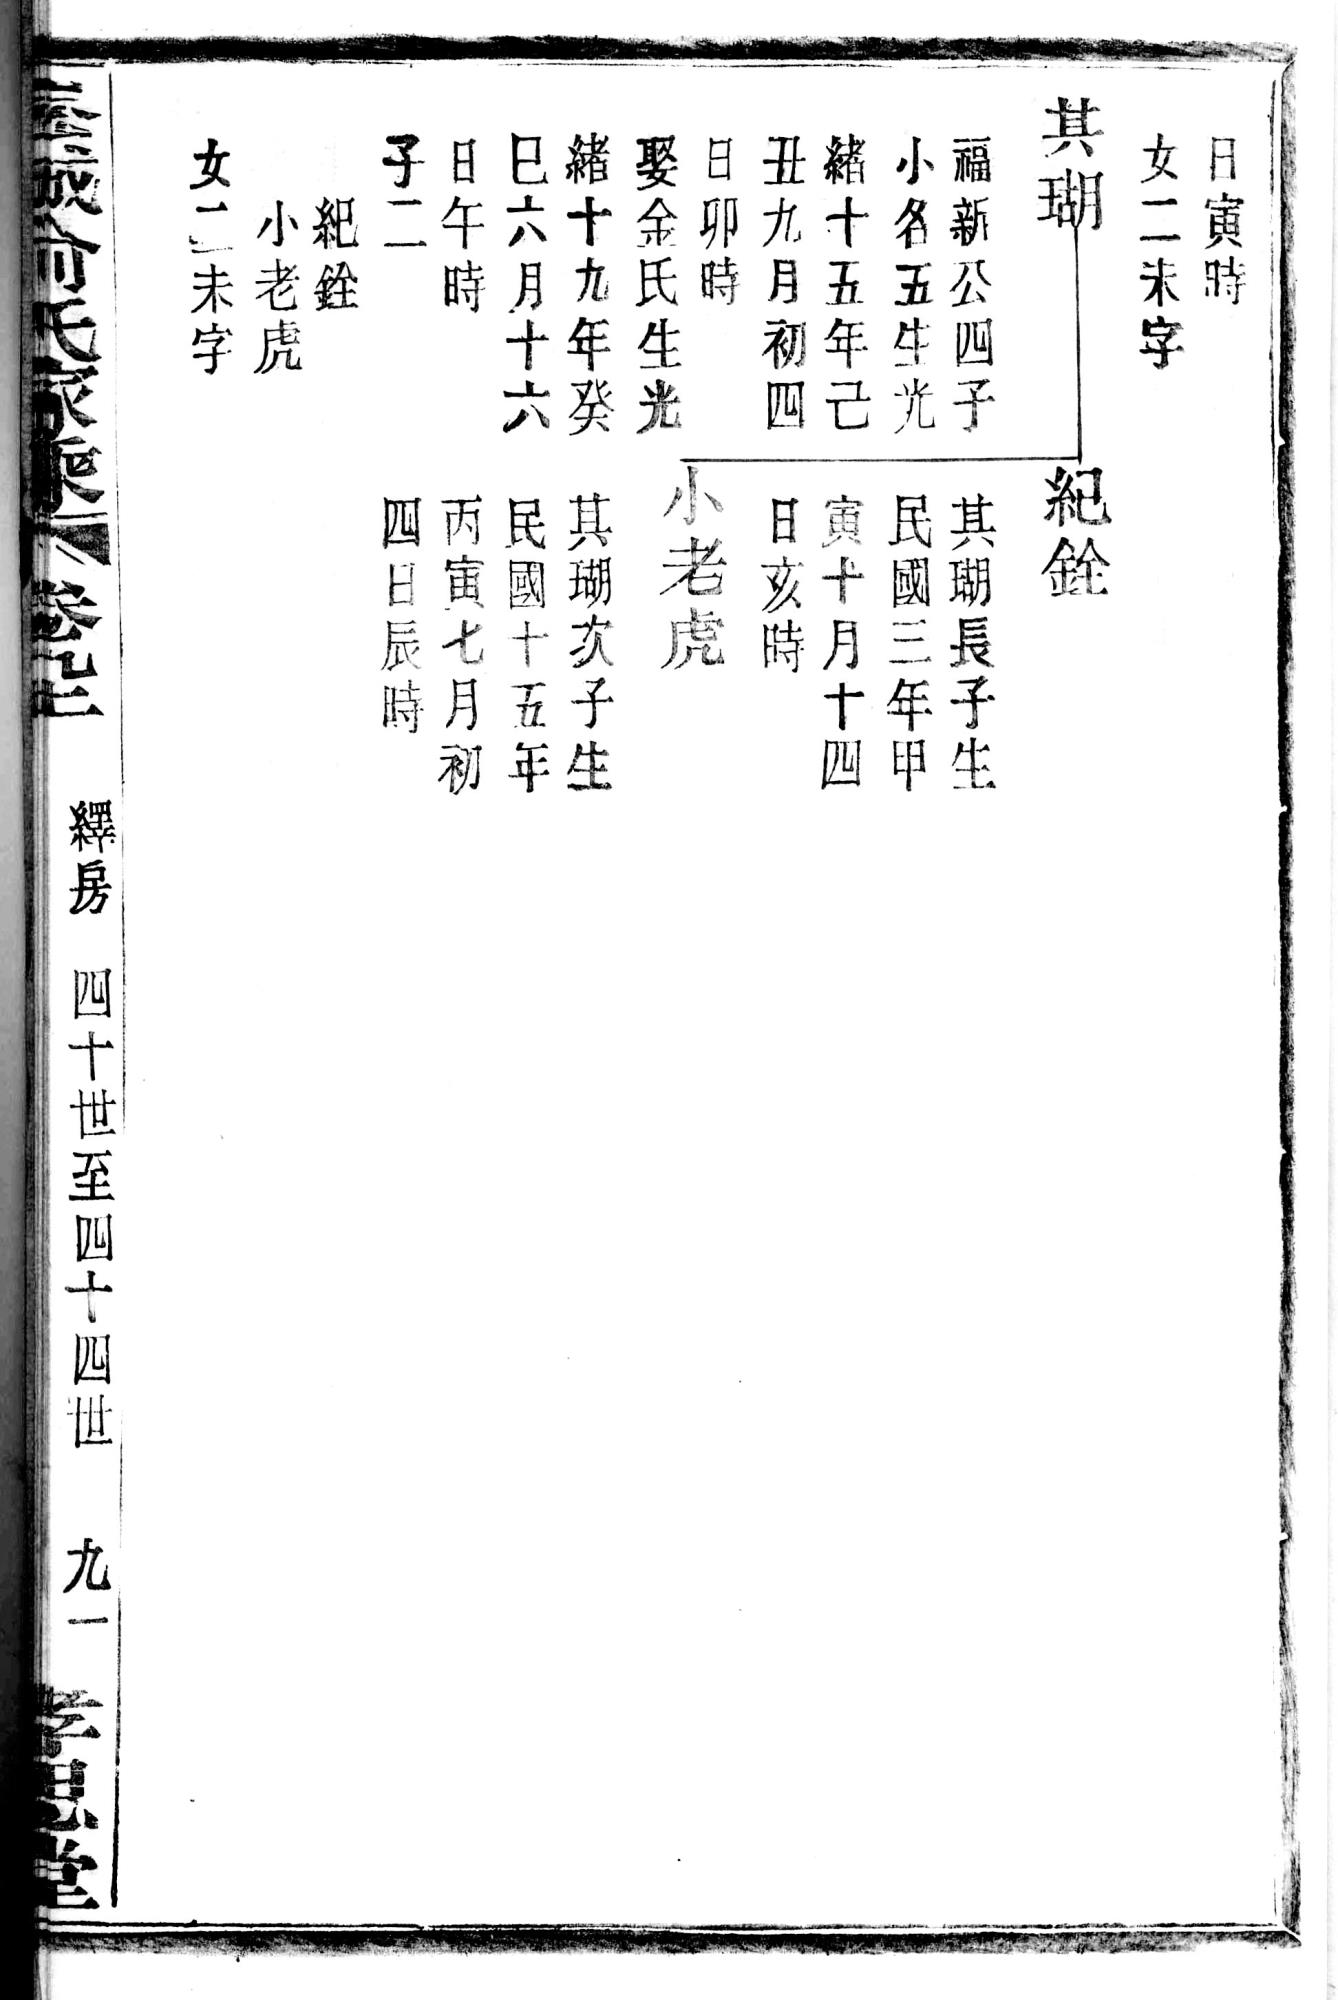 日寅時
女二未字
其瑚
福新公四子
小名五生光
緒十五年己
丑九月初四
日卯時
娶金氏生光
緒十九年癸
巳六月十六
日午時
子二
紀銓
小老虎
女二未字
紀銓
其瑚長子生
民國三年甲
寅十月十四
日亥時
小老虎
其瑚次子生
民國十五年
丙寅七月初
四日辰時
俞氏家乘
繹房 四十世至四十四世 九一
孝思堂